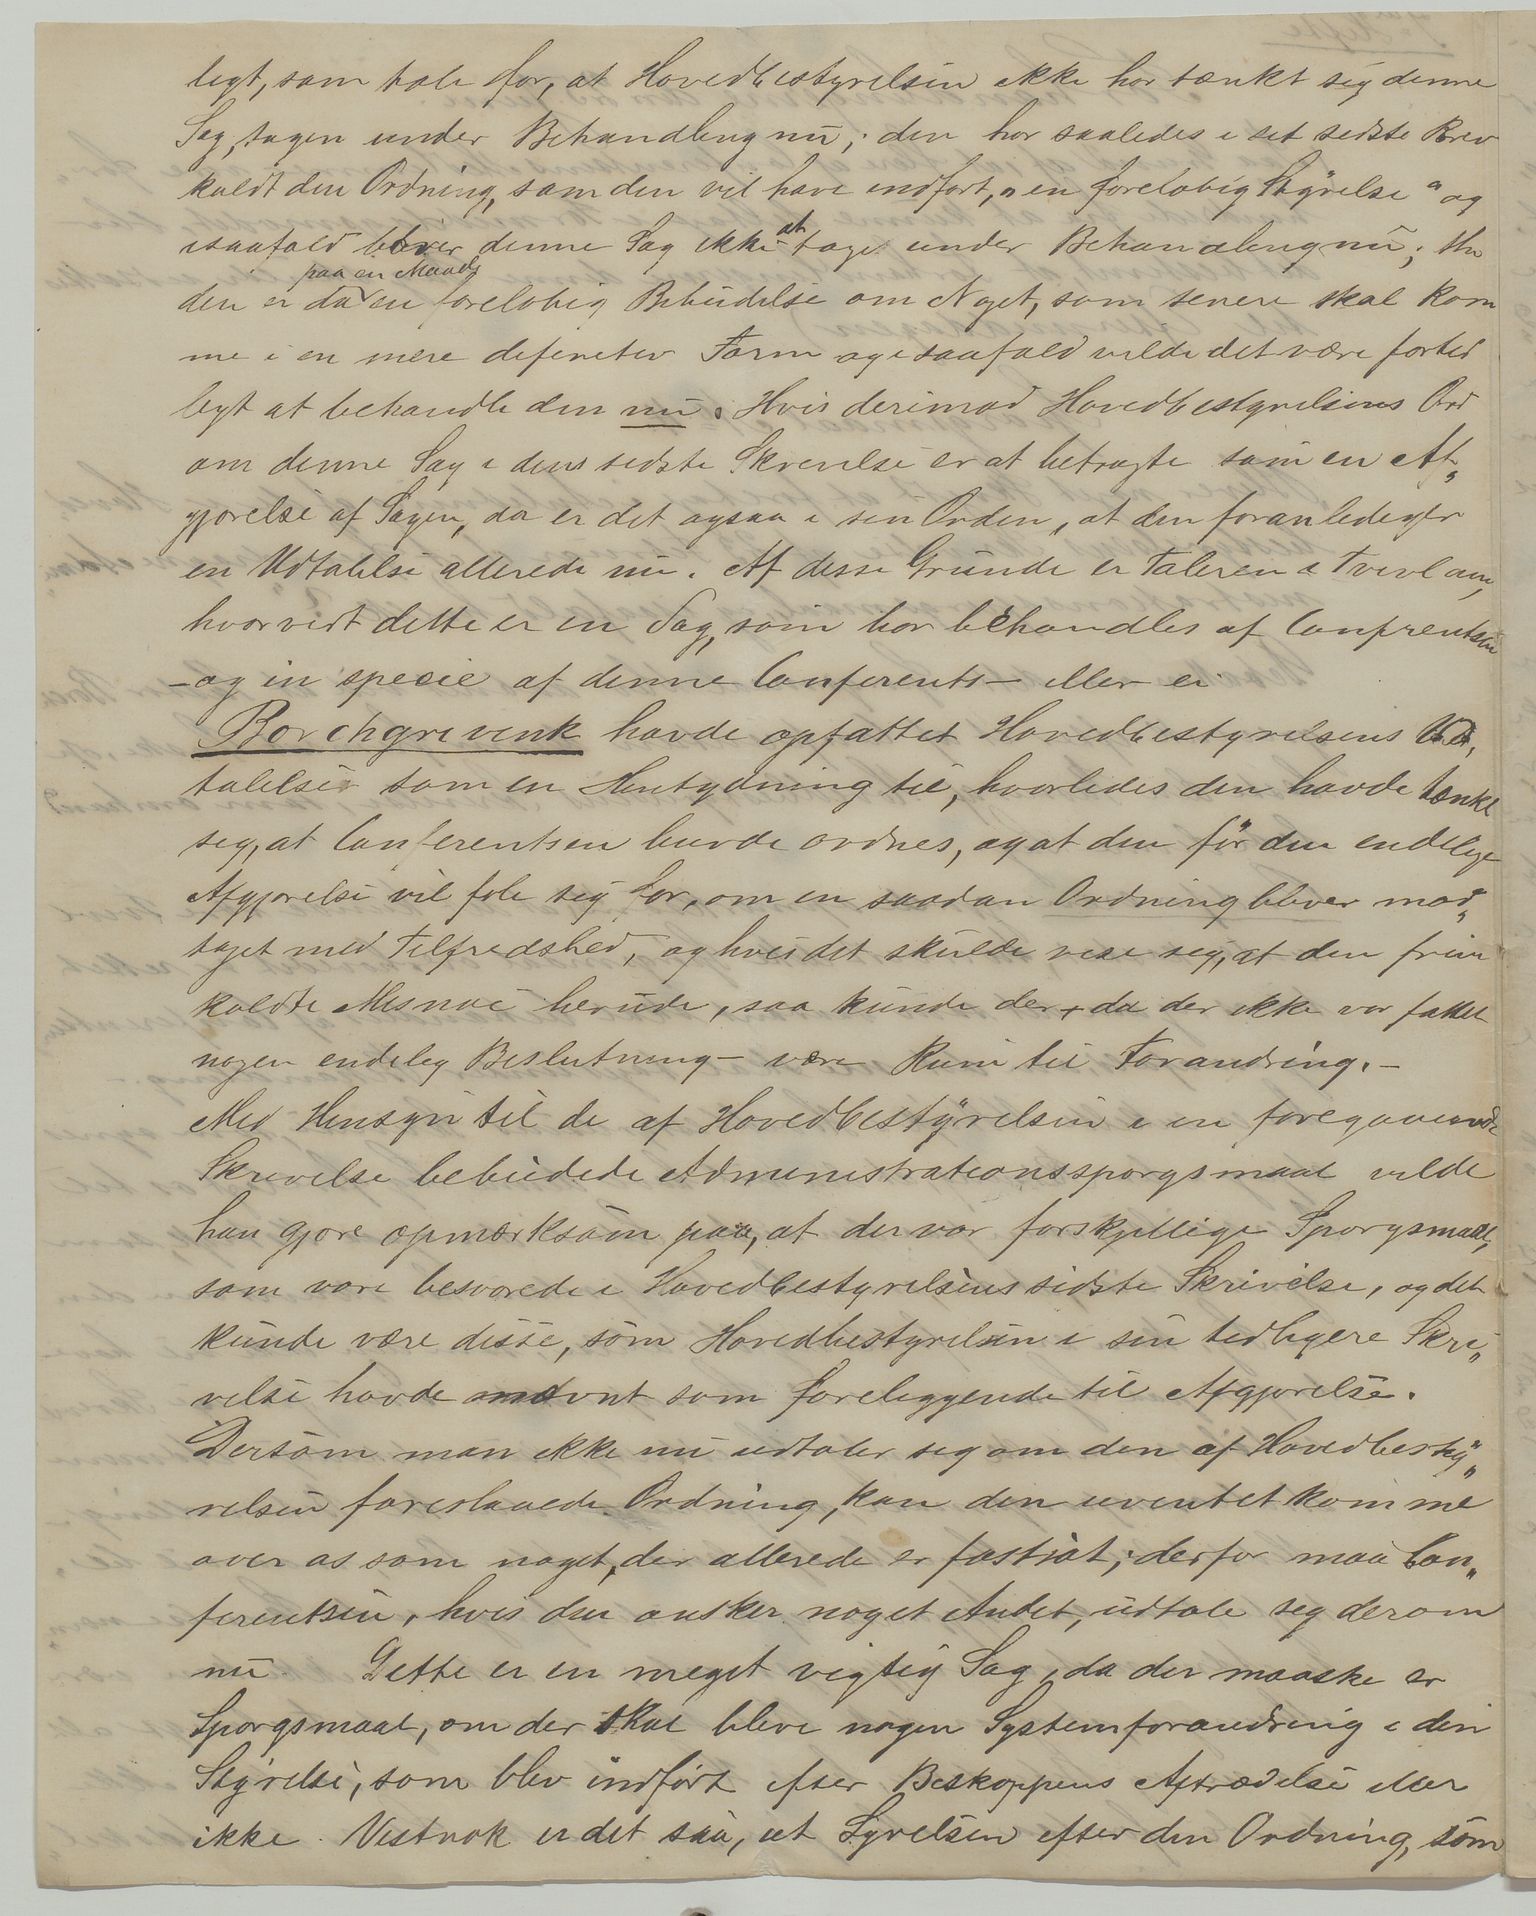 ligt, som tale for, at Hovedbestyrelsen ikke har tænkt sig denne
Sag, tagen under Behandling nu; den har saaledes i sit sidste Brev
kaldt den Ordning, som den vil have indført, "en foreløbig Styrelse" og
isaafald bliver denne Sag ikke at tage under Behandling nu; thi
den er da paa en Maade en foreløbig Bebudelse om Noget, som senere skal kom
me i en mere definitiv Form og isaafald vilde det være fortid
ligt at behandle den nu. Hvis derimod Hovedbestyrelsens Ord
om denne Sag i dens sidste Skrivelse er at betragte som en Af„
gjørelse af Sagen, da er det ogsaa i sin Orden, at den foranlediger
en Udtalelse allerede nu. Af disse Grunde er Taleren i Tvivl om,
hvorvidt dette er en Sag, som bør behandles af Conferentsen
- og in specie af denne Conferents - eller ei.
Borchgrevink havde opfattet Hovedbestyrelsens Ud„
talelser som en Hentydning til, hvorledes den havde tænkt
sig, at Conferentsen burde ordnes, og at den før den endelige
Afgjørelse vil føle sig for, om en saadan Ordning bliver mod„
taget med Tilfredshed, og hvis det skulde vise sig, at den frem
kaldte Misnøie herude, saa kunde der - da der ikke var fattet
nogen endelig Beslutning - være Rum til Forandring. -
Med Hensyn til de af Hovedbestyrelsen i en foregaaende
Skrivelse bebudede Administrationsspørgsmaal vilde
han gjøre opmærksom paa, at der var forskjellige Spørgsmaal,
som vare besvarede i Hovedbestyrelsens sidste Skrivelse, og det
kunde være disse, som Hovedbestyrelsen i sin tidligere Skri„
velse havde nævnt som foreliggende til Afgjørelse.
Dersom man ikke nu udtaler sig om den af Hovedbesty„
relsen foreslaaede Ordning, kan den uventet komme
over os som noget, der allerede er fastsat; derfor maa Con„
ferentsen, hvis den ønsker noget Andet, udtale sig derom
nu. Dette er en meget vigtig Sag, da der maaske er
Spørgsmaal, om der skal blive nogen Systemforandring i den
Styrelse, som blev indført efter Biskoppens Aftrædelse eller
ikke. Vistnok er det saa, at Styrelsen efter den Ordning, som